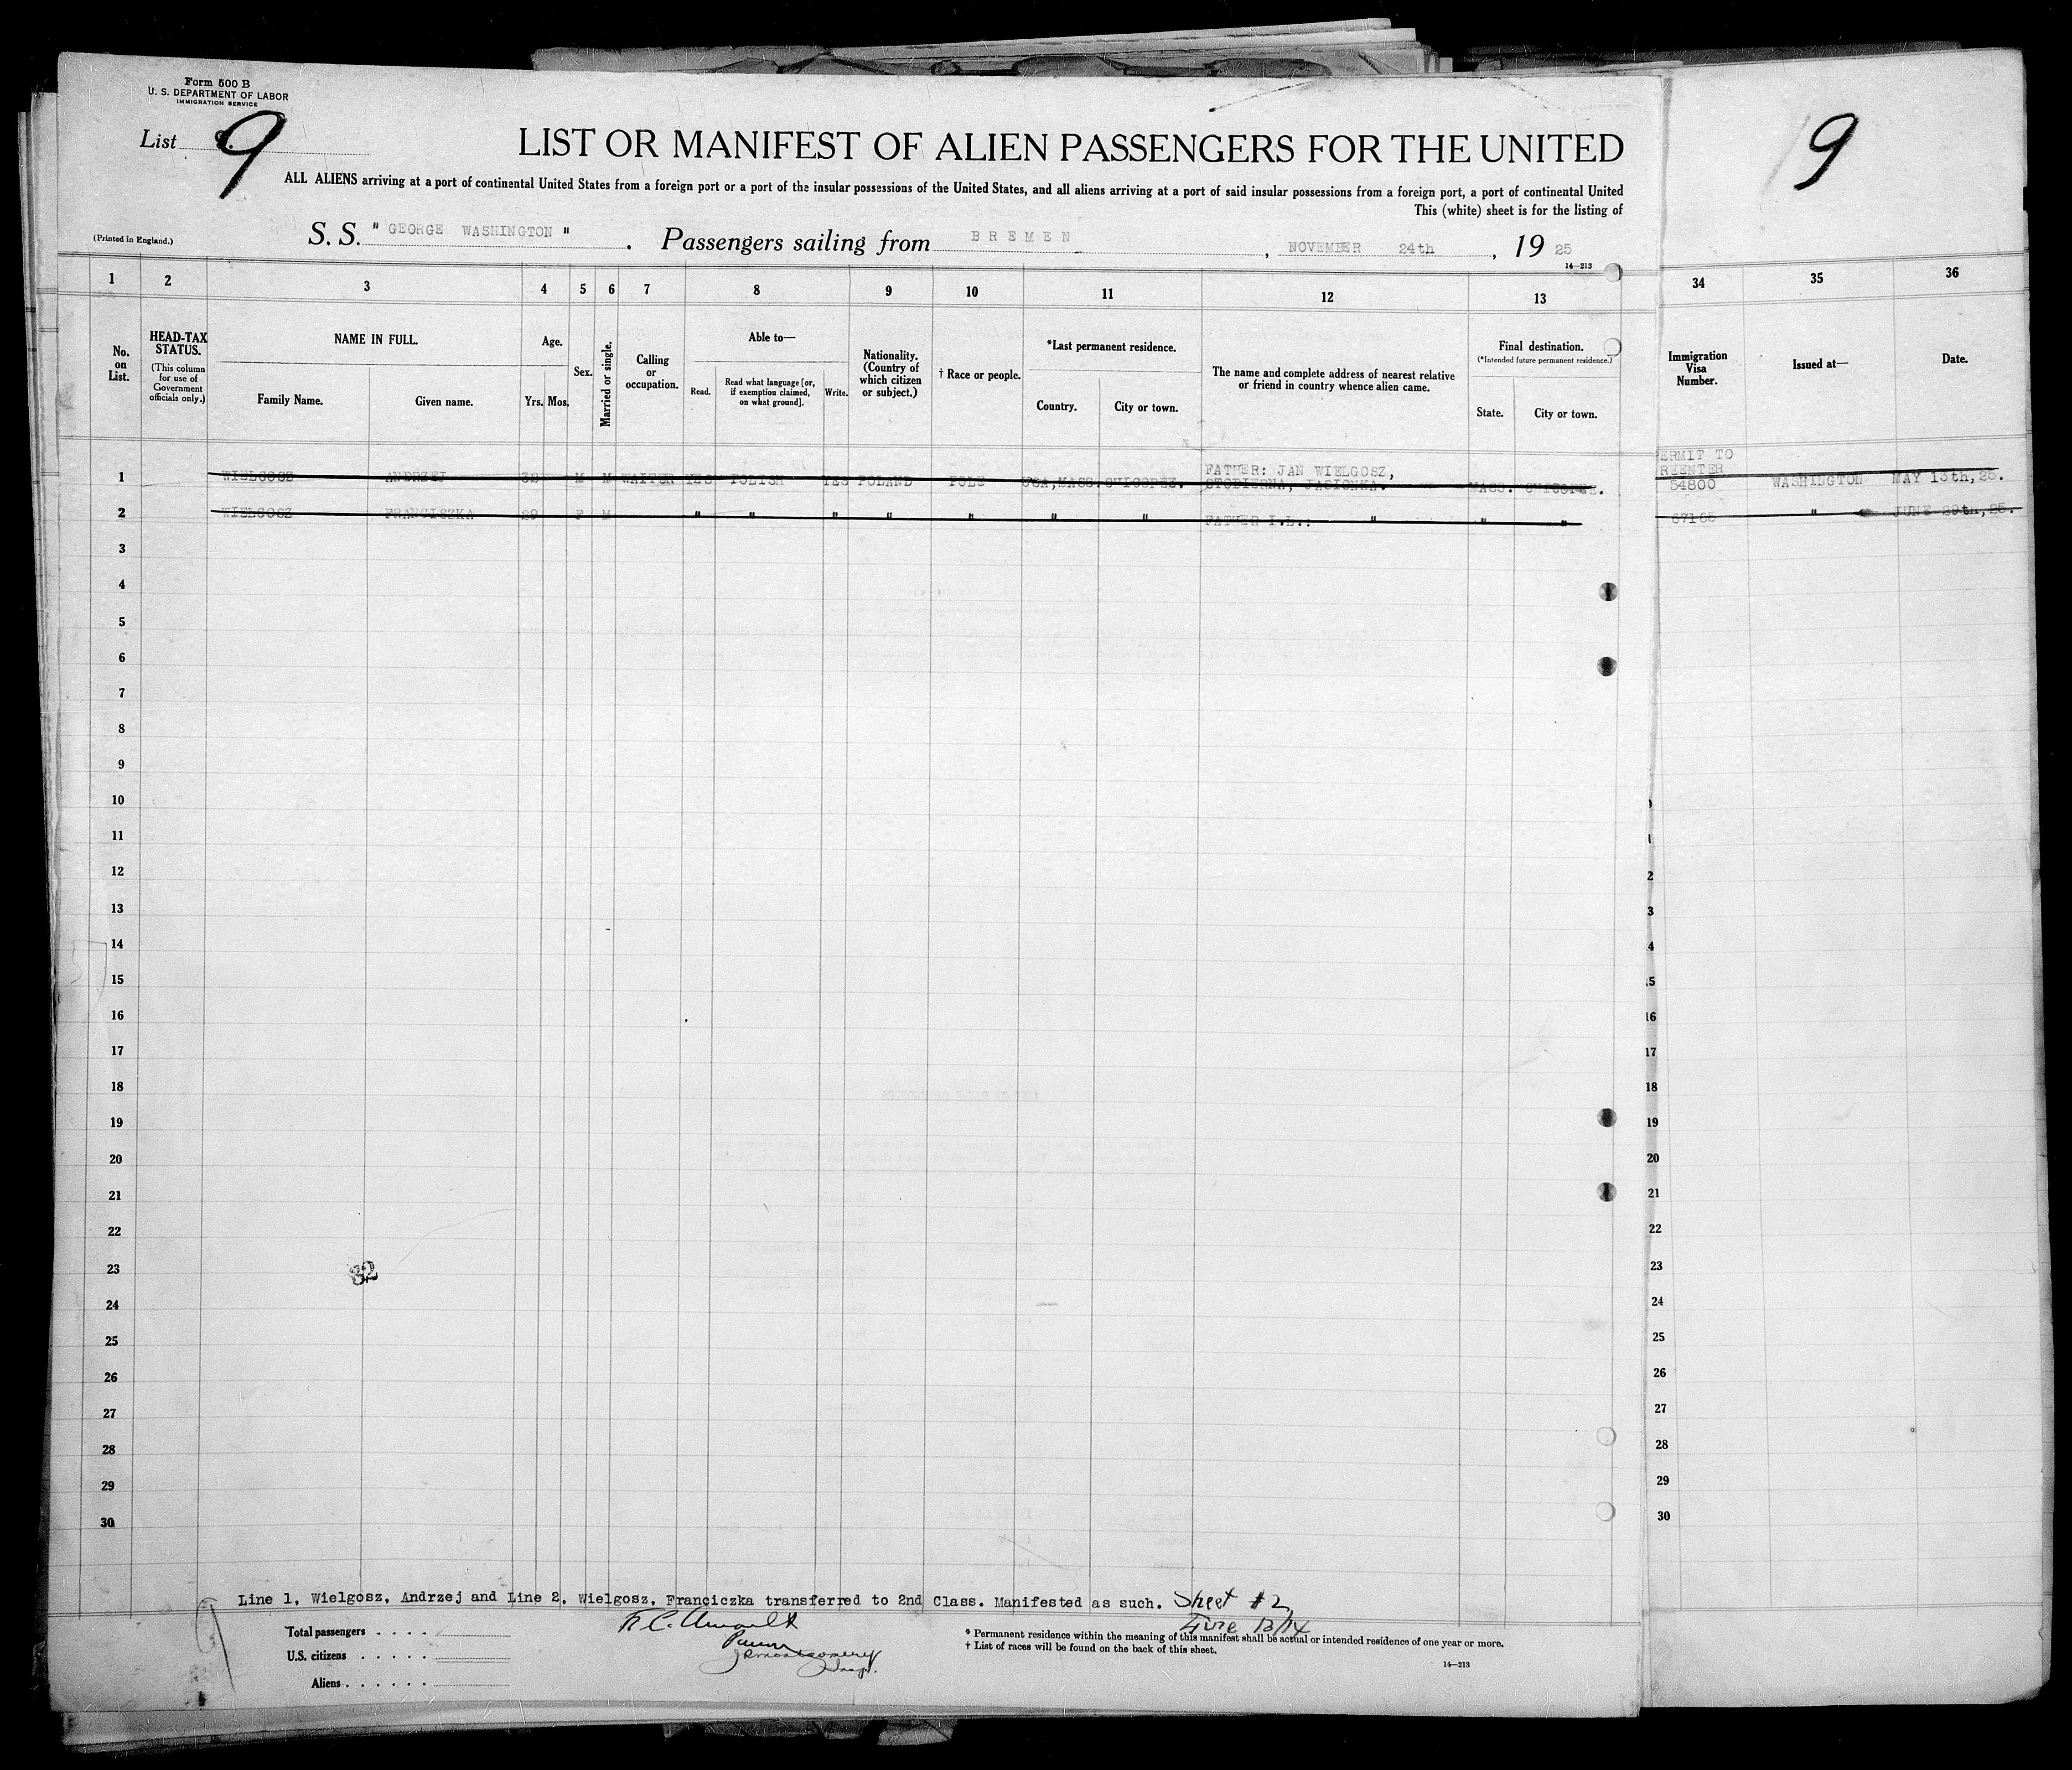 Form 500 B
U. S. DEPARTMENT OF LABOR
IMMIGRATION SERVICE
List 9
9
LIST OR MANIFEST OF ALIEN PASSENGERS FOR THE UNITED
ALL ALIENS arriving at a port of continental United States from a foreign port or a port of the insular possessions of the United States, and all aliens arriving at a port of said insular possessions from a foreign port, a port of continental United
This (white) sheet is for the listing of
(Printed in England.)
S. S. "GEORGE WASHINGTON". Passengers sailing from BREMEN, NOVEMBER 24th, 19 25
14—213
1 2 3 4 5 6 7 8 9 10 11 12 13 34 35 36
No. on List.
HEAD-TAX STATUS.
(This column for use of Government officials only.)
NAME IN FULL.
Family Name. Given name.
Age.
Yrs. Mos.
Sex.
Married or single.
Calling or occupation.
Able to—
Read. Read what language [or, if exemption claimed, on what ground]. Write.
Nationality. (Country of which citizen or subject.)
† Race or people.
*Last permanent residence.
Country. City or town.
The name and complete address of nearest relative or friend in country whence alien came.
Final destination.
(*Intended future permanent residence.)
State. City or town.
Immigration Visa Number.
Issued at—
Date.
FATHER: JAN WIELGOSZ, ERMIT TO
REENTER
1 WIELGOSZ ANDRZEJ 32 M M WAITER YES POLISH YES POLAND POLE USA,MASS. CHICOPEE. STOBIERNA, JASIONKA. MASS. CHICOPEE. 54800 WASHINGTON MAY 13th,25.
2 WIELGOSZ FRANCISZKA 29 F M " " " " " " " FATHER I.L.: " " " 67165 " JUNE 29th,25.
3
4
5
6
7
8
9
10
11 1
12 2
13 3
14 4
15 15
16 16
17 17
18 18
19 19
20 20
21 21
22 22
23 32 23
24 24
25 25
26 26
27 27
28 28
29 29
30 30
Line 1, Wielgosz, Andrzej and Line 2, Wielgosz, Franciczka transferred to 2nd Class. Manifested as such. Sheet #2
Total passengers . . . .
U.S. citizens . . . . .
Aliens . . . . . .
* Permanent residence within the meaning of this manifest shall be actual or intended residence of one year or more.
† List of races will be found on the back of this sheet.
14—213